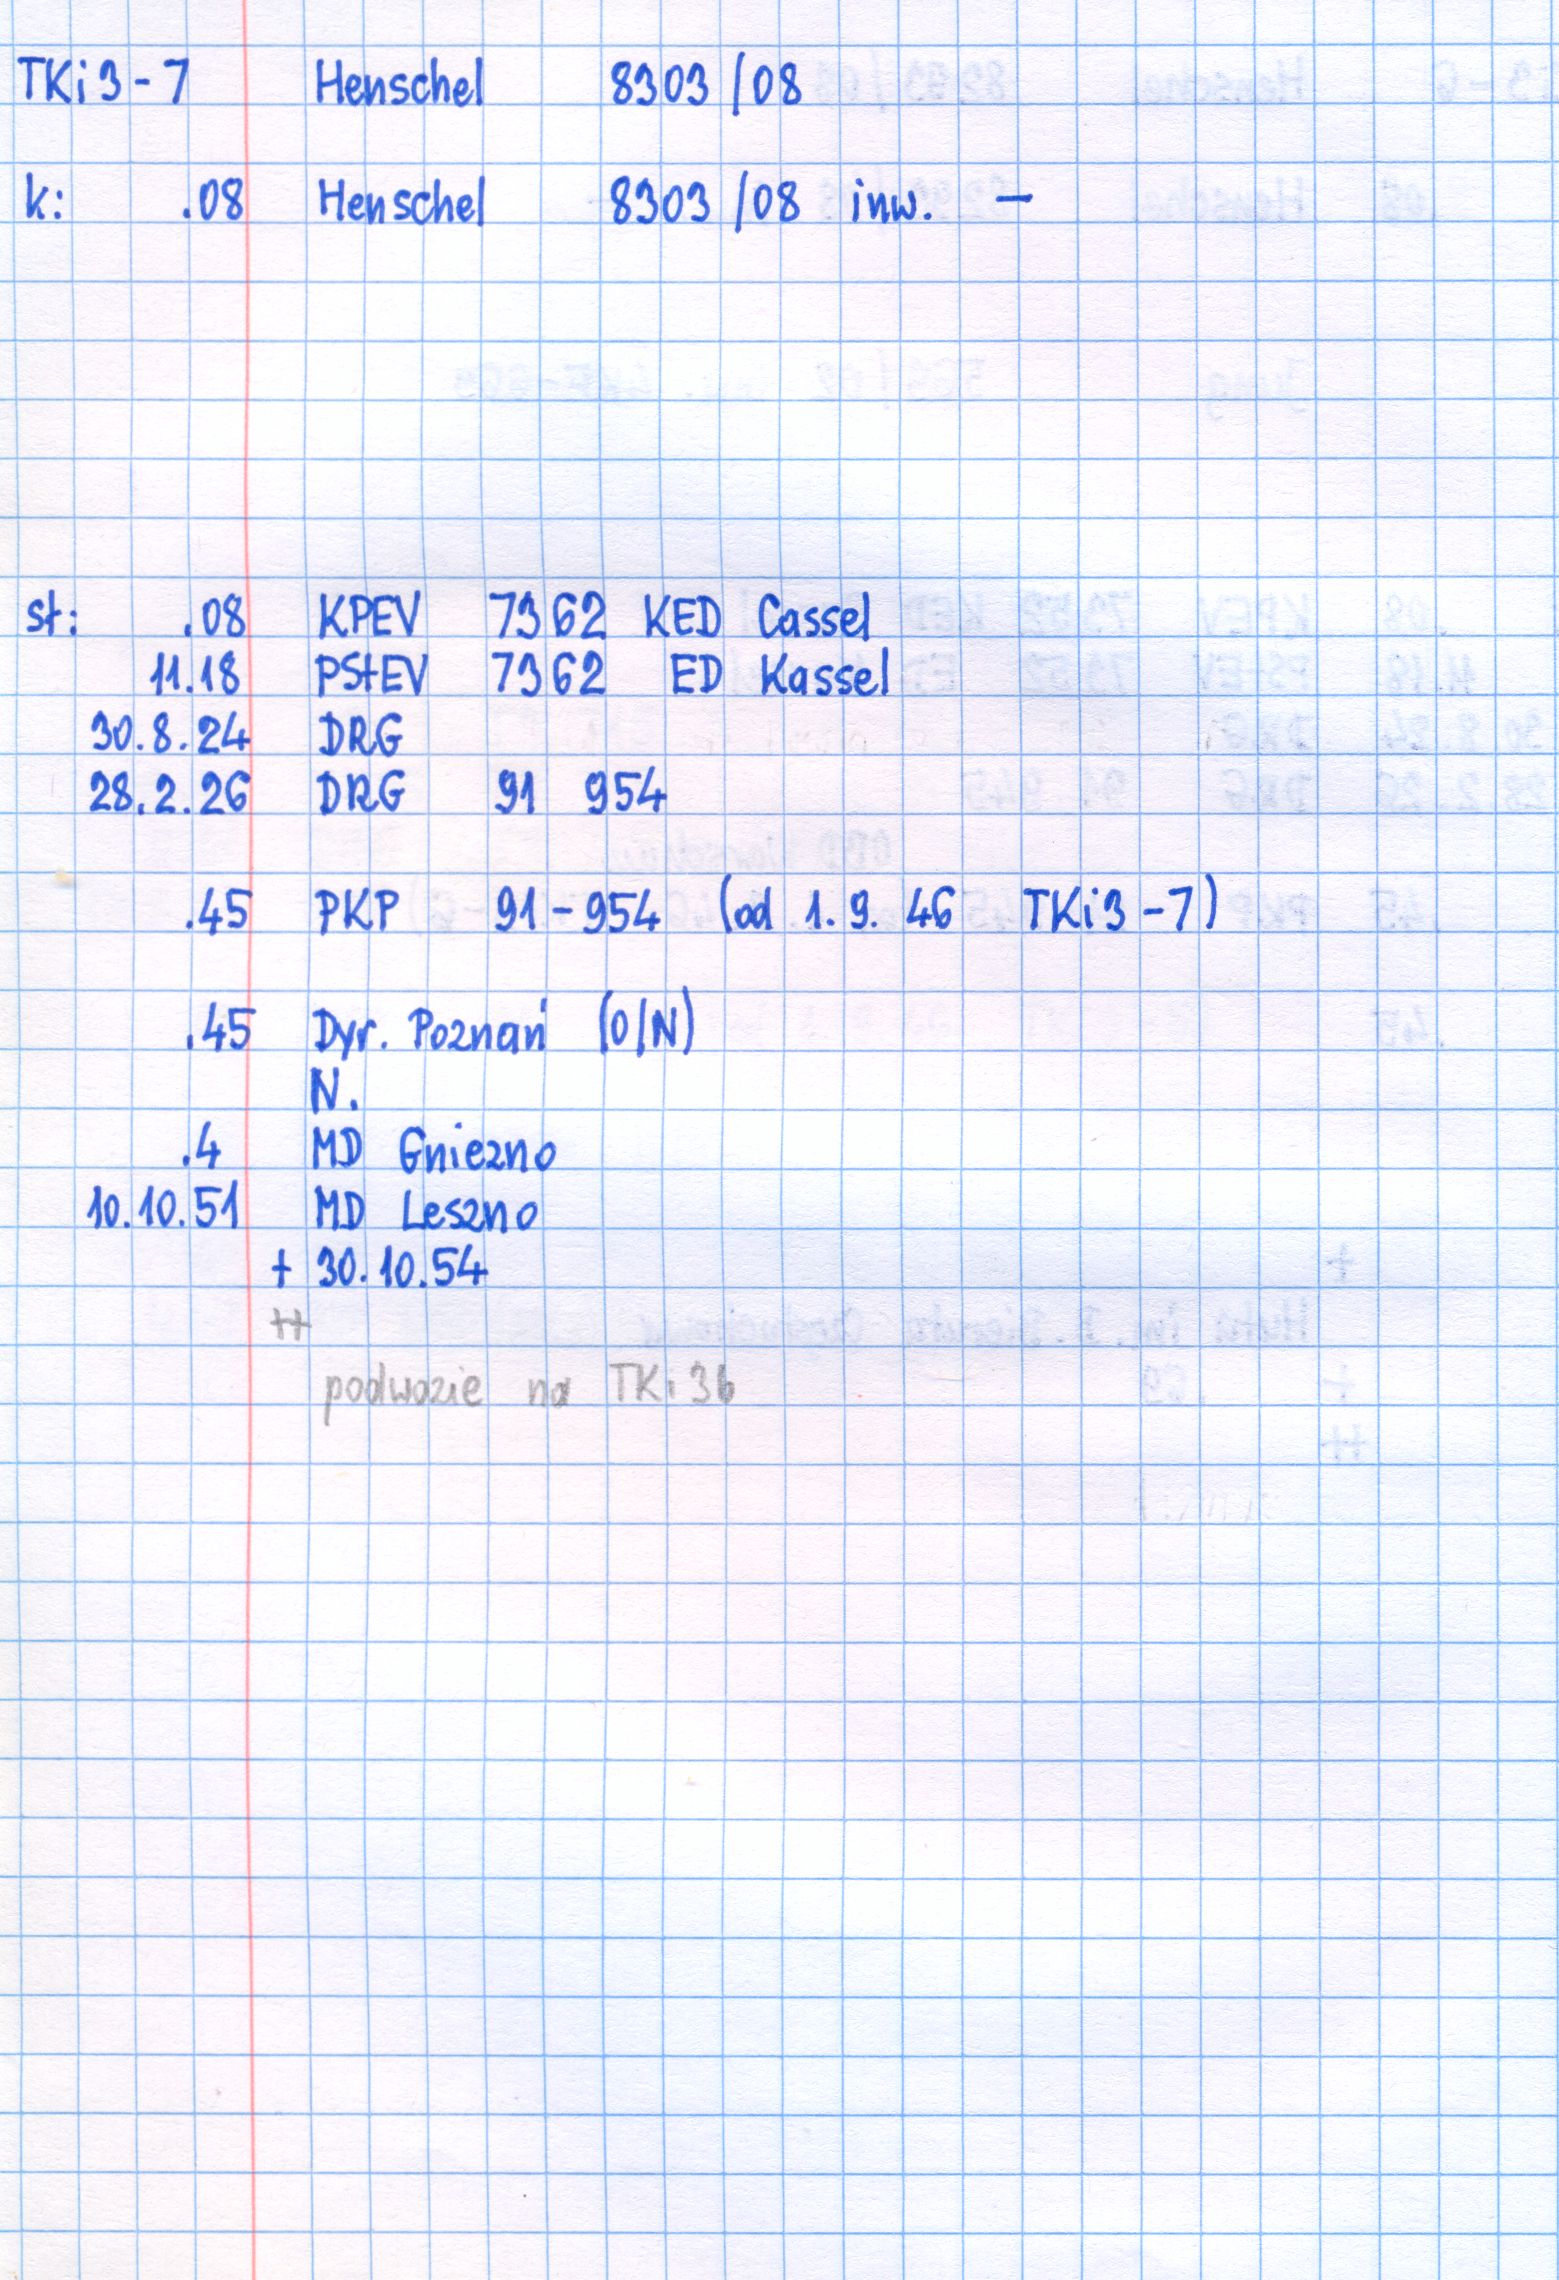 TKi3-7 Henschel 8303/08
k: .08 Henschel 8303/08 inw. –
st: .08 KPEV 7362 KED Cassel
11.18 PStEV 7362 ED Kassel
30.8.24 DRG
28.2.26 DRG 91 954
.45 PKP 91-954 (od 1.9.46 TKi3-7)
.45 Dyr. Poznań (O/N)
N.
.4 MD Gniezno
10.10.51 MD Leszno
+ 30.10.54
++
podwozie na TKi3b